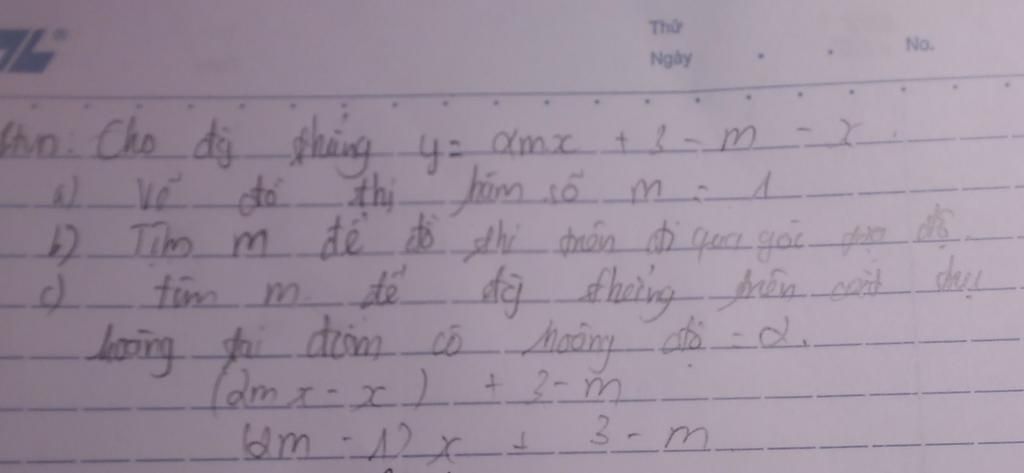 Thứ
Ngày
No.
Cho đg thẳng y = 2mx + 3 - m - x
a) Vẽ đồ thị hàm số m = 1
b) Tìm m để đồ thị trên đi qua gốc toạ độ.
c) tìm m để đg thẳng trên cắt trục
hoành tại điểm có hoành độ = 2.
(2mx - x) + 3 - m
(2m - 1) x + 3 - m